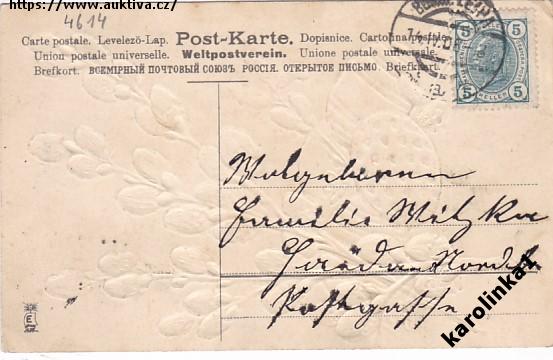 https://www.auktiva.cz/
4614
Carte postale. Levelezö-Lap. Post-Karte. Dopisnice. Cartolina postale.
Union postale universelle. Weltpostverein. Unione postale universale.
Brefkort. ВСЕМІРНЫЙ ПОЧТОВЫЙ СОЮЗЪ РОССІЯ. ОТКРЫТОЕ ПИСЬМО. Briefkaart.
5 5
5 5
HELLER
Wolgeboren
Familie Witzka
Haida-Nord
Postgasse
E
karolinka1